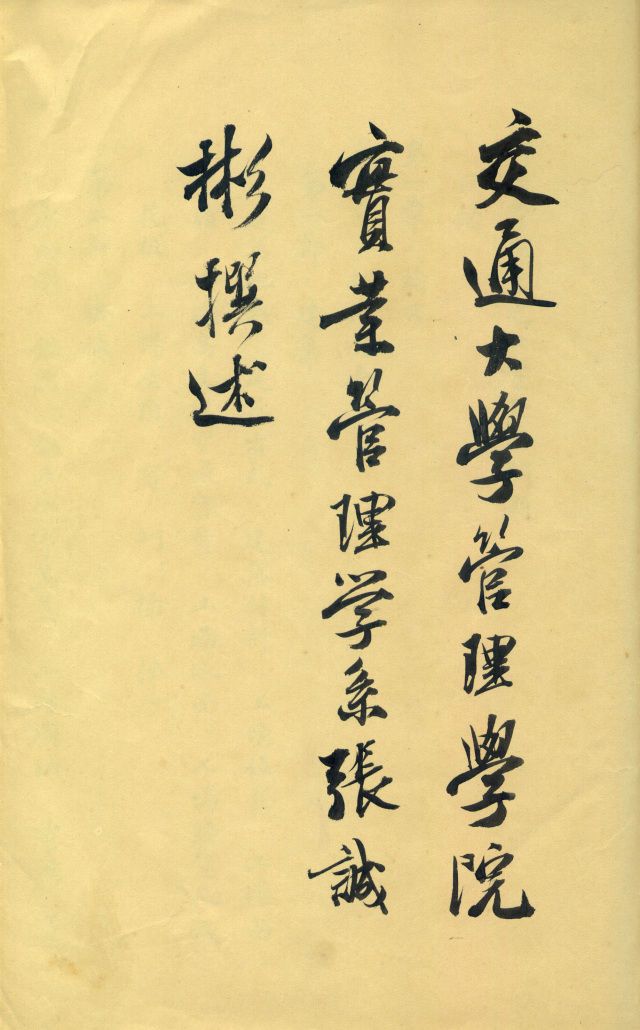 交通大學管理學院
實業管理学系張誠
彬撰述